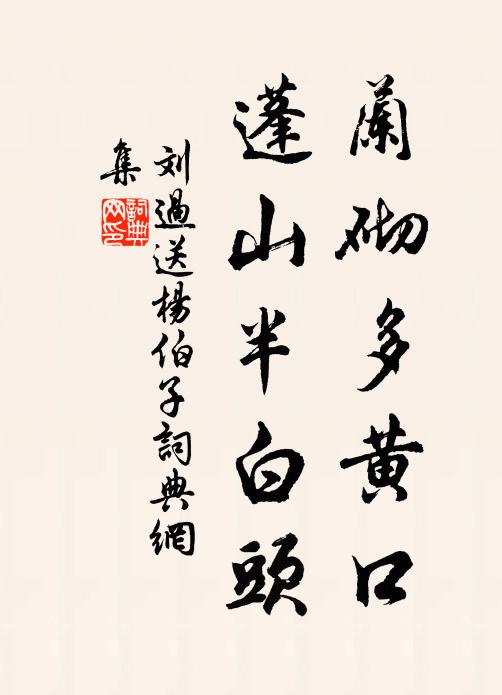 蘭砌多黄口
蓬山半白頭
刘過送楊伯子詞典網
集
詞典
网印